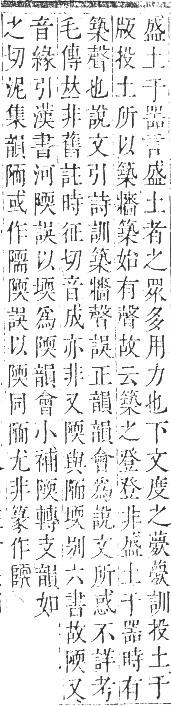 盛土于器言盛土者之眾多用力也下文度之薨薨訓投土于
版投土所以築牆築始有聲故云築之登登非盛土于器時有
築聲也說文引詩訓築牆聲誤正韻韻會為說文所惑不詳考
毛傳𠀤非舊註時征切音成亦非又陾與陑堧別六書故陾又
音緣引漢書河陾誤以堧為陾韻會小補陾轉支韻如
之切泥集韻陑或作隭陾誤以陾同陑尤非篆作